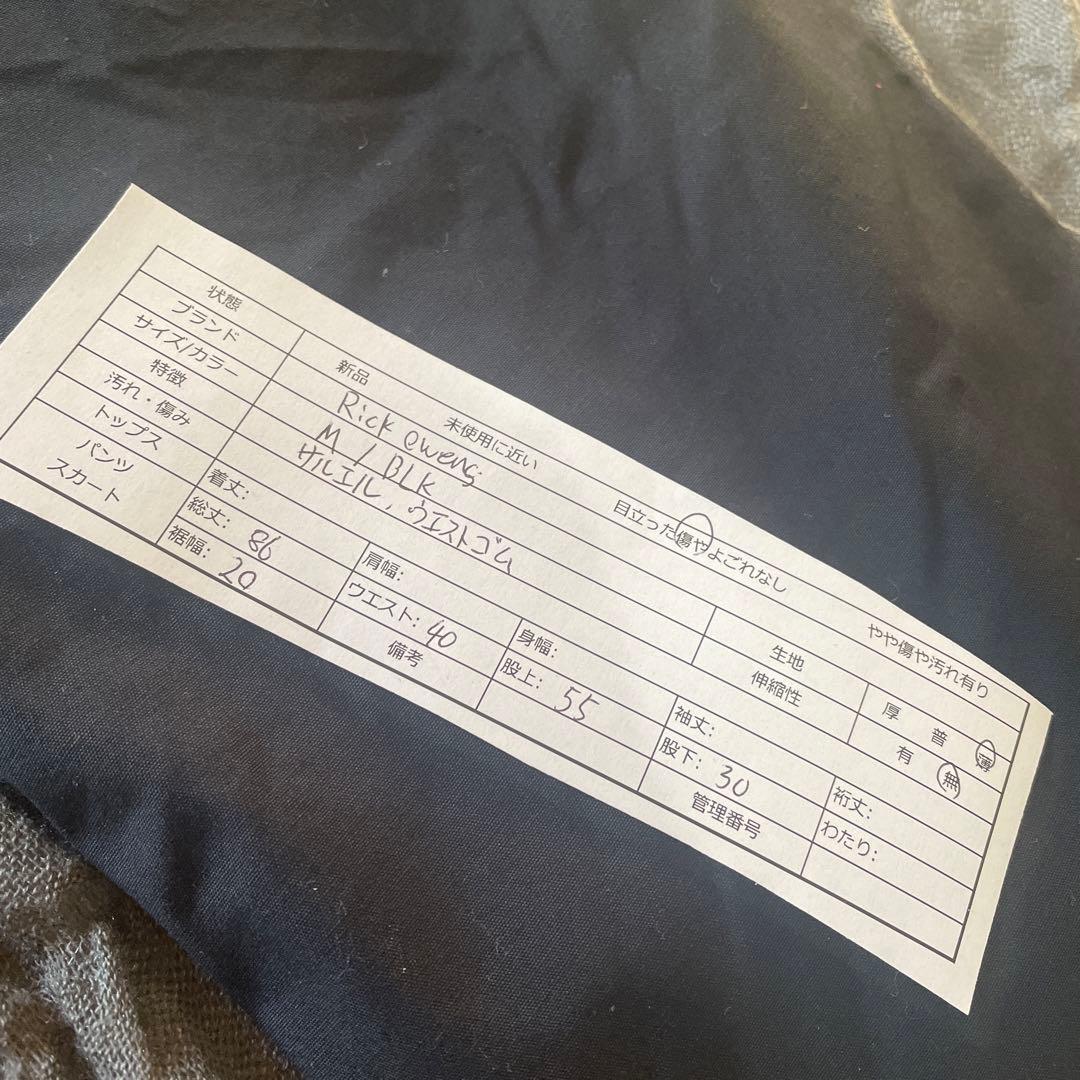 状態 新品 未使用に近い 目立った傷やよごれなし やや傷や汚れ有り
ブランド Rick Owens
サイズ/カラー M / BLK 生地 厚 普 薄
特徴 サルエル, ウエストゴム 伸縮性 有 無
汚れ・傷み
トップス 着丈: 肩幅: 身幅: 袖丈: 裄丈:
パンツ 総丈: 86 ウエスト: 40 股上: 55 股下: 30 わたり:
スカート 裾幅: 20 備考 管理番号